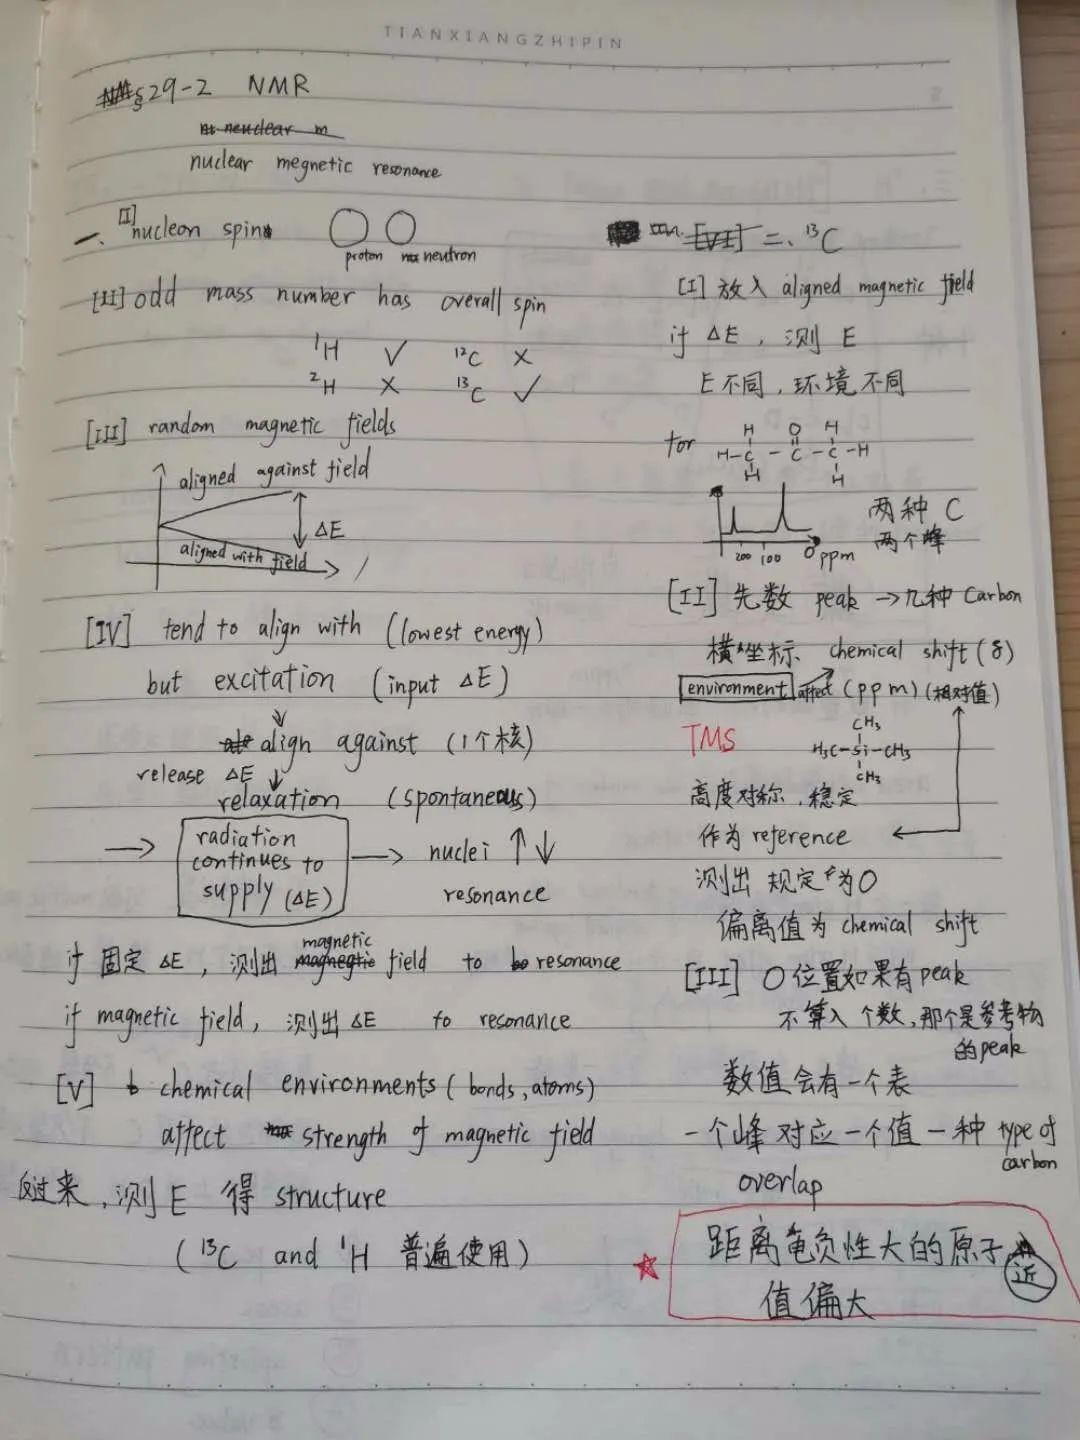 TIANXIANGZHIPIN
§29-2 NMR
nuclear megnetic resonance
一. [I] nucleon spin
proton neutron
[II] odd mass number has overall spin
¹H ✓ ¹²C ×
²H × ¹³C ✓
[III] random magnetic fields
aligned against field
ΔE
aligned with field
[IV] tend to align with (lowest energy)
but excitation (input ΔE)
↓
align against (1个核)
release ΔE ↓
relaxation (spontaneous)
→ radiation continues to supply (ΔE) → nuclei ↑↓
resonance
if 固定 ΔE, 测出 magnetic field to resonance
if magnetic field, 测出 ΔE to resonance
[V] chemical environments (bonds, atoms)
affect strength of magnetic field
反过来, 测 E 得 structure
(¹³C and ¹H 普遍使用)
二、¹³C
[I] 放入 aligned magnetic field
if ΔE, 测 E
E不同, 环境不同
for
H O H
H-C-C-C-H
H H
200 100 0 ppm
两种 C
两个峰
[II] 先数 peak → 几种 Carbon
横坐标、chemical shift (δ)
environment affect (ppm) (相对值)
TMS
CH₃
H₃C-Si-CH₃
CH₃
高度对称, 稳定
作为 reference ←
测出 规定 为0
偏离值为 chemical shift
[III] 0位置如果有peak
不算入个数, 那个是参考物
的peak
数值会有一个表
一个峰对应一个值一种 type of
carbon
overlap
☆ 距离电负性大的原子近
值偏大